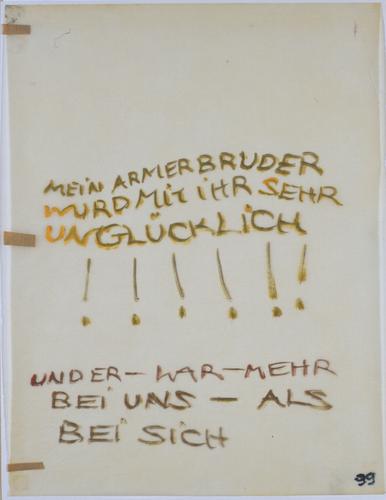 MEIN ARMER BRUDER
WURD MIT IHR SEHR
UNGLÜCKLICH
! ! ! ! ! !
UND ER – WAR – MEHR
BEI UNS – ALS
BEI SICH
99